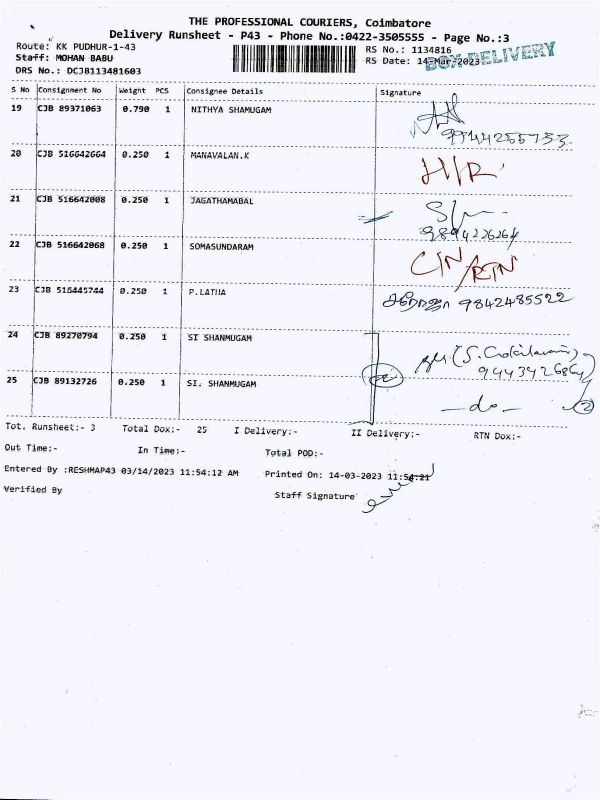 THE PROFESSIONAL COURIERS, Coimbatore
Delivery Runsheet - P43 - Phone No.:0422-3505555 - Page No.:3
Route: KK PUDHUR-1-43
RS No.: 1134816
Staff: MOHAN BABU
RS Date: 14-Mar-2023
BOX DELIVERY
DRS No.: DCJB113481603
S No Consignment No Weight PCS Consignee Details Signature
19 CJB 89371063 0.790 1 NITHYA SHAMUGAM
20 CJB 516642664 0.250 1 MANAVALAN.K
21 CJB 516642008 0.250 1 JAGATHAMABAL
22 CJB 516642068 0.250 1 SOMASUNDARAM
23 CJB 516445744 0.250 1 P.LATHA சரோஜா 9842485522
24 CJB 89270794 0.250 1 SI SHANMUGAM
25 CJB 89132726 0.250 1 SI. SHANMUGAM -do- 2
Tot. Runsheet:- 3 Total Dox:- 25 I Delivery:- II Delivery:- RTN Dox:-
Out Time:- In Time:- Total POD:-
Entered By :RESHMAP43 03/14/2023 11:54:12 AM Printed On: 14-03-2023 11:54:21
Verified By Staff Signature